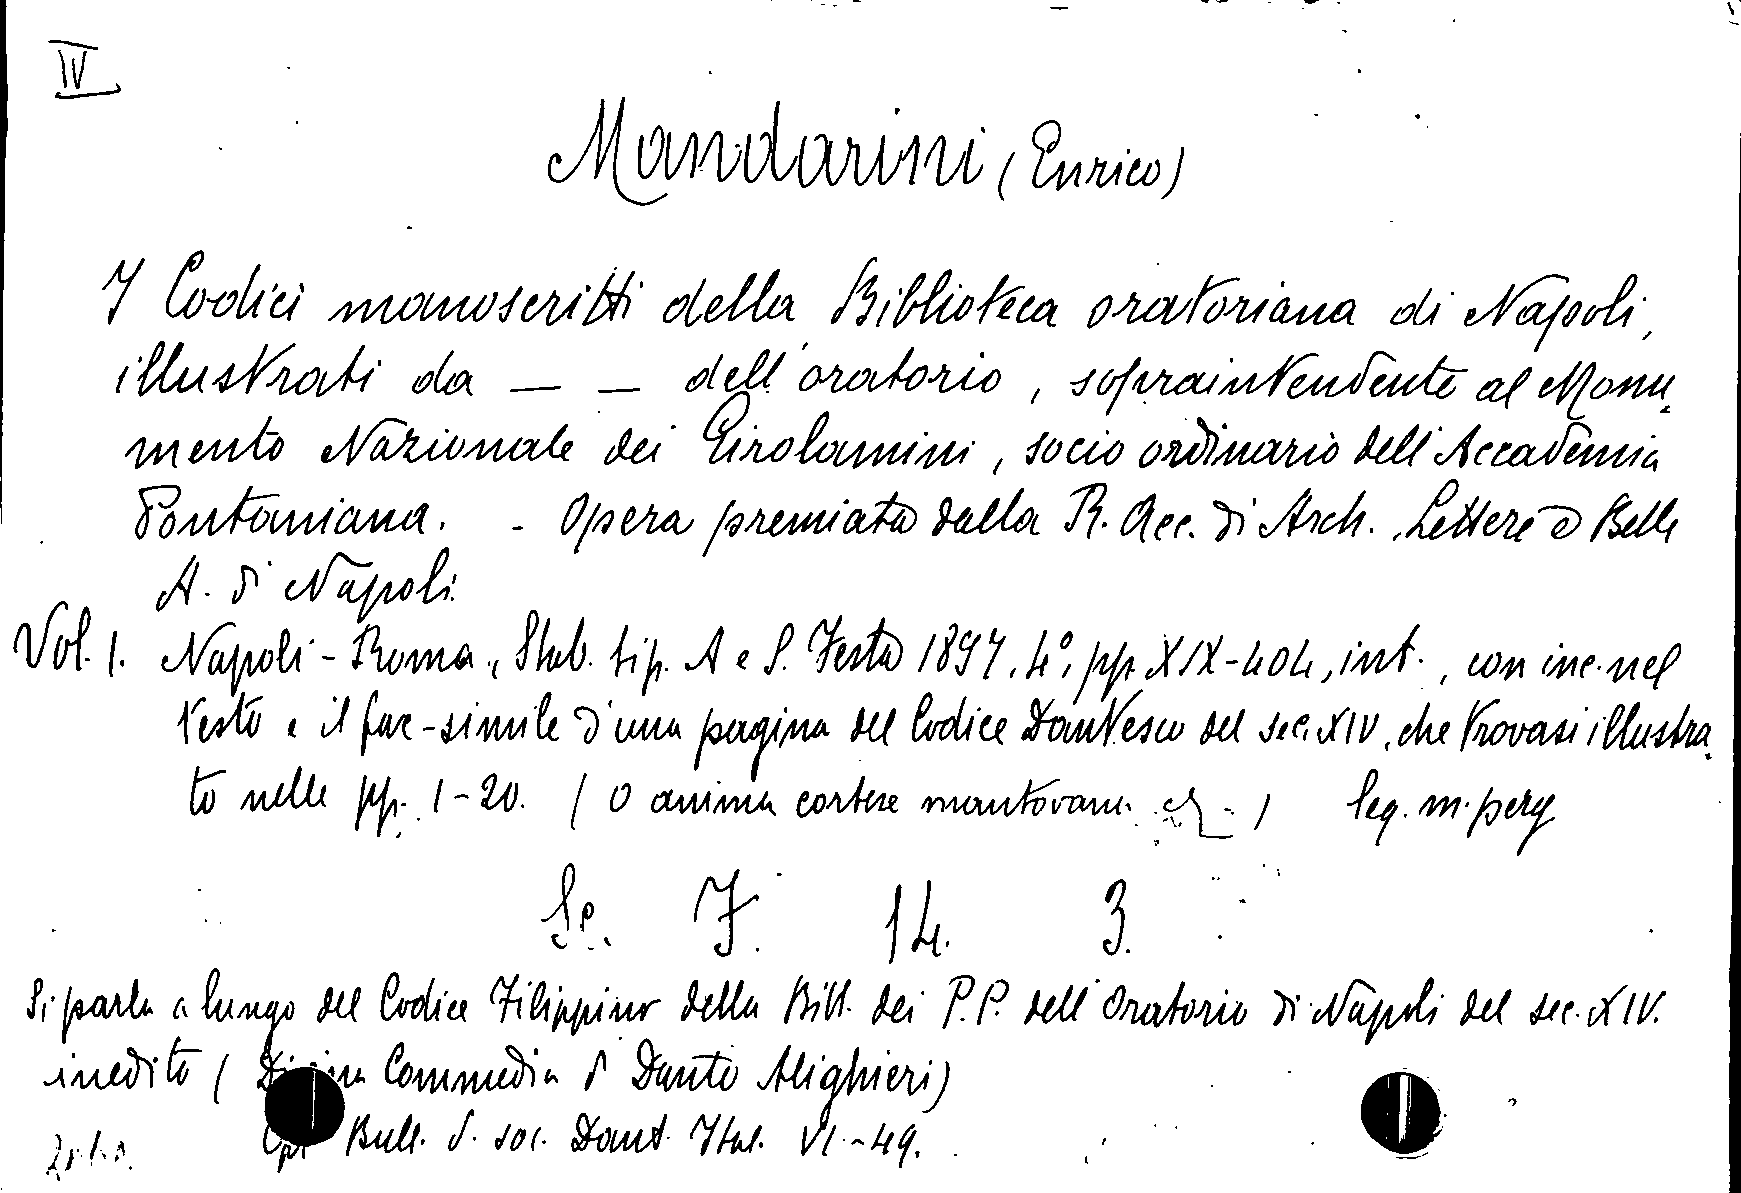 IV
Mandarini (Enrico)
I Codici manoscritti della Biblioteca oratoriana di Napoli,
illustrati da — — dell'oratorio, sopraintendente al Monu-
mento Nazionale dei Girolamini, socio ordinario dell'Accademia
Pontaniana. - Opera premiata dalla R. Acc. di Arch. Lettere e Belle
A. di Napoli.
Vol. 1. Napoli - Roma, Stab. tip. A e S. Festa 1897. 4°, pp. XIX-404, int., con inc. nel
testo e il fac-simile d'una pagina del Codice Dantesco del sec. XIV, che trovasi illustra-
to nelle pp. 1-20. (O anima cortese mantovana) leg. m. perg
Sc. 7. 14. 3.
Si parla a lungo del Codice Filippino della Bibl. dei P.P. dell'Oratorio di Napoli del sec. XIV.
inedito (Divina Commedia d Dante Alighieri)
Bull. d. soc. Dant. Ital. VI - 49.